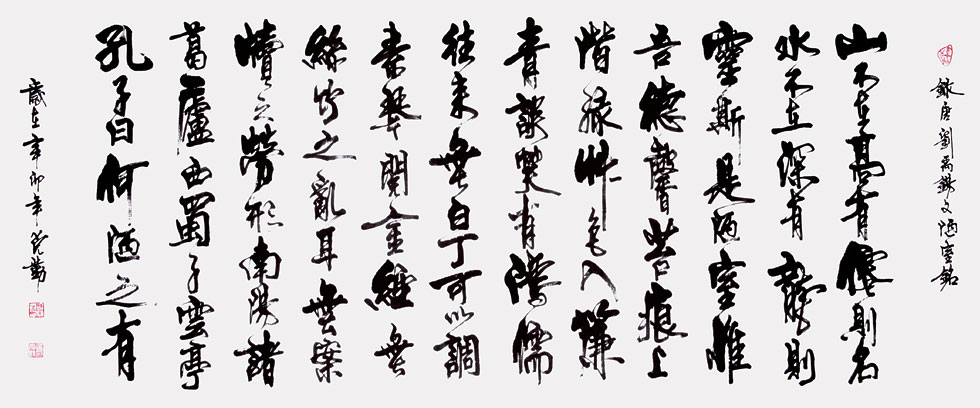 錄唐劉禹錫文陋室銘
山不在高有僊則名
水不在深有龍則
靈斯是陋室惟
吾德馨苔痕上
階綠艸色入簾
青談笑有鴻儒
往來無白丁可以調
素琴閱金經無
絲竹之亂耳無案
牘之勞形南陽諸
葛廬西蜀子雲亭
孔子曰何陋之有
歲在辛卯年